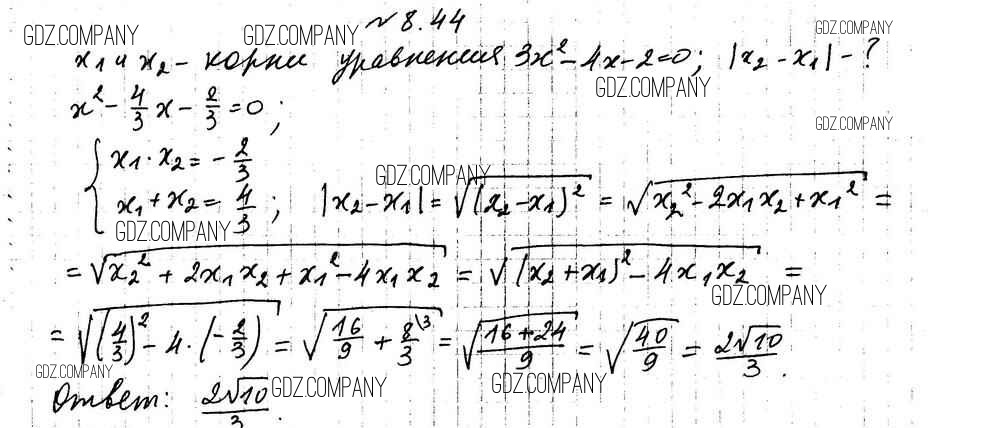 № 8.44
GDZ.COMPANY GDZ.COMPANY GDZ.COMPANY
x₁ и x₂ - корни уравнения 3x² - 4x - 2 = 0; |x₂ - x₁| - ?
GDZ.COMPANY
x² - 4/3 x - 2/3 = 0;
GDZ.COMPANY
{ x₁ · x₂ = - 2/3
GDZ.COMPANY
x₁ + x₂ = 4/3; |x₂ - x₁| = √(x₂ - x₁)² = √(x₂² - 2x₁x₂ + x₁²) =
GDZ.COMPANY
= √(x₂² + 2x₁x₂ + x₁² - 4x₁x₂) = √((x₂ + x₁)² - 4x₁x₂) =
GDZ.COMPANY
= √((4/3)² - 4 · (- 2/3)) = √(16/9 + 8/3 \3) = √((16 + 24)/9) = √(40/9) = 2√10/3.
GDZ.COMPANY GDZ.COMPANY GDZ.COMPANY
Ответ: 2√10/3.